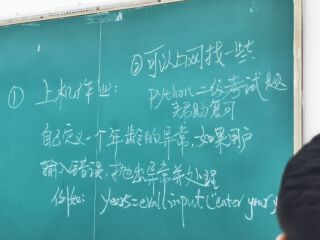 ② 可以上网找一些
python二级考试题
来帮助复习
① 上机作业：
自己定义一个年龄的异常，如果用户
输入错误，抛出异常并处理
例如：years=eval(input("enter years